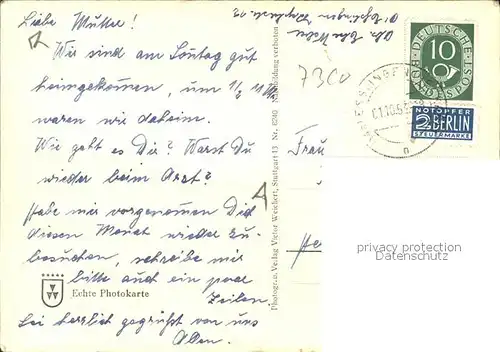 Liebe Mutter!
Wir sind am Sonntag gut
heimgekommen, um 1/2 11 Uhr
waren wir daheim.
Wie geht es Dir? Warst Du
wieder beim Arzt?
Habe mir vorgenommen Dich
diesen Monat wieder zu-
besuchen, schreibe mir
bitte auch ein paar
Zeilen.
Sei herzlich gegrüßt von uns
Allen.
Echte Photokarte
Photogr. u. Verlag Victor Weichert, Stuttgart 13 Nr. 6240 Nachbildung verboten
Abs.
7300
DEUTSCHE BUNDESPOST
10
NOTOPFER
2 BERLIN
STEUERMARKE
Frau
privacy protection
Datenschutz